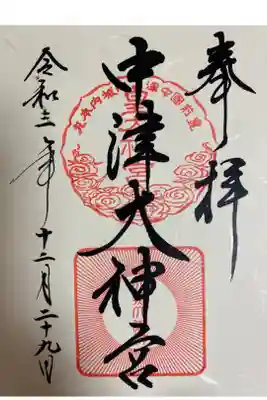 奉拝
中津大神宮
令和三年十二月二十九日